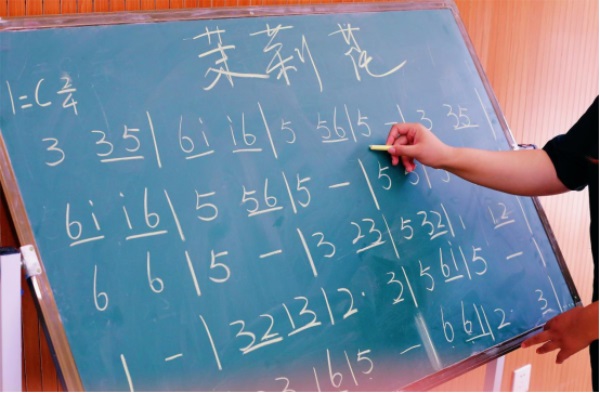 茉莉花
1=C 2/4
3 35 | 6i i6 | 5 56 | 5 - | 3 35 |
6i i6 | 5 56 | 5 - | 5 5 |
6 6 | 5 - | 3 23 | 5 32 | 1 12 |
1 - | 32 13 | 2· 3 | 5 6i | 5 - |
3 16 | 5 - | 6 61 | 2· 3 |